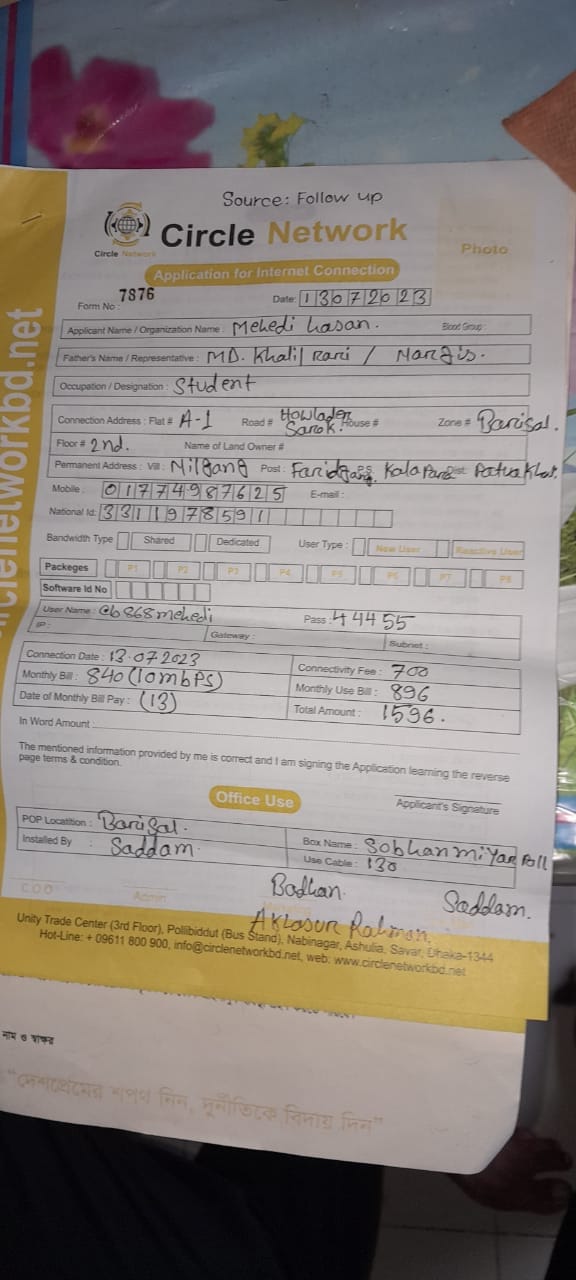 Source: Follow up
Circle Network
Circle Network
Photo
Application for Internet Connection
Form No : 7876
Date: 13072023
Applicant Name / Organization Name : Mehedi hasan. Blood Group :
Father's Name / Representative : MD. Khalil rari / Nargis.
Occupation / Designation : Student
Connection Address : Flat # A-1 Road # Howlader Sarok. House # Zone # Barisal.
Floor # 2nd. Name of Land Owner #
Permanent Address : Vill : Nilgang Post : Faridgang. P.S. Kalapara Dist: Patuakhali.
Mobile : 01774987625 E-mail :
National Id: 3311978591
Bandwidth Type Shared Dedicated User Type : New User Reactive User
Packeges P1 P2 P3 P4 P5 P6 P7 P8
Software Id No
User Name : @b868mehedi Pass : 44455
IP : Gateway : Subnet :
Connection Date : 13.07.2023 Connectivity Fee : 700
Monthly Bill : 840 (10mbPS) Monthly Use Bill : 896
Date of Monthly Bill Pay : (13) Total Amount : 1596.
In Word Amount :
The mentioned information provided by me is correct and I am signing the Application learning the reverse
page terms & condition.
Applicant's Signature
Office Use
POP Locatition : Barisal. Box Name : Sobhan miyar Poll
Installed By : Saddam. Use Cable : 130
Badhan. Saddam.
C.O.O Admin Marketing
Aklasur Rahman.
Unity Trade Center (3rd Floor), Pollibiddut (Bus Stand), Nabinagar, Ashulia, Savar, Dhaka-1344
Hot-Line: + 09611 800 900, info@circlenetworkbd.net, web: www.circlenetworkbd.net
circlenetworkbd.net
নাম ও স্বাক্ষর
"দেশপ্রেমের শপথ নিন, দুর্নীতিকে বিদায় দিন"